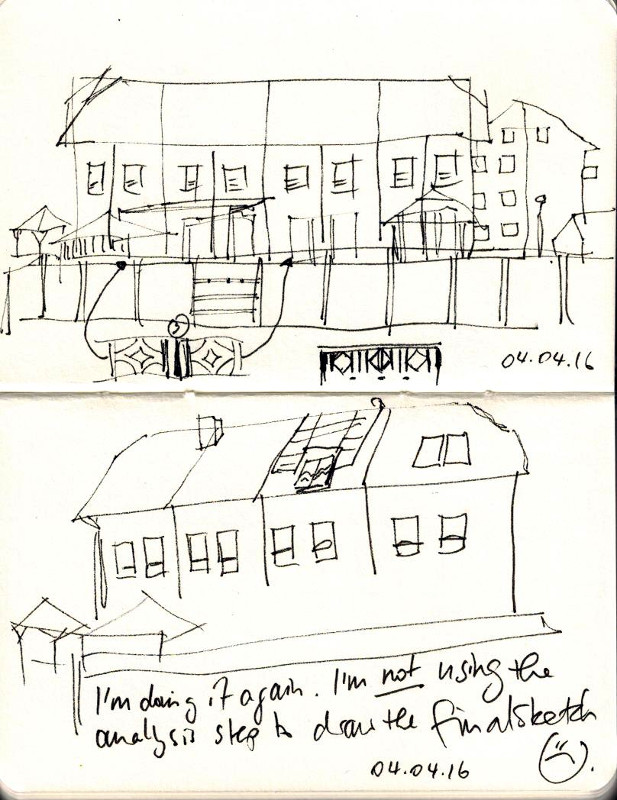 5
04.04.16
I'm doing it again. I'm not using the
analysis step to draw the final sketch
04.04.16